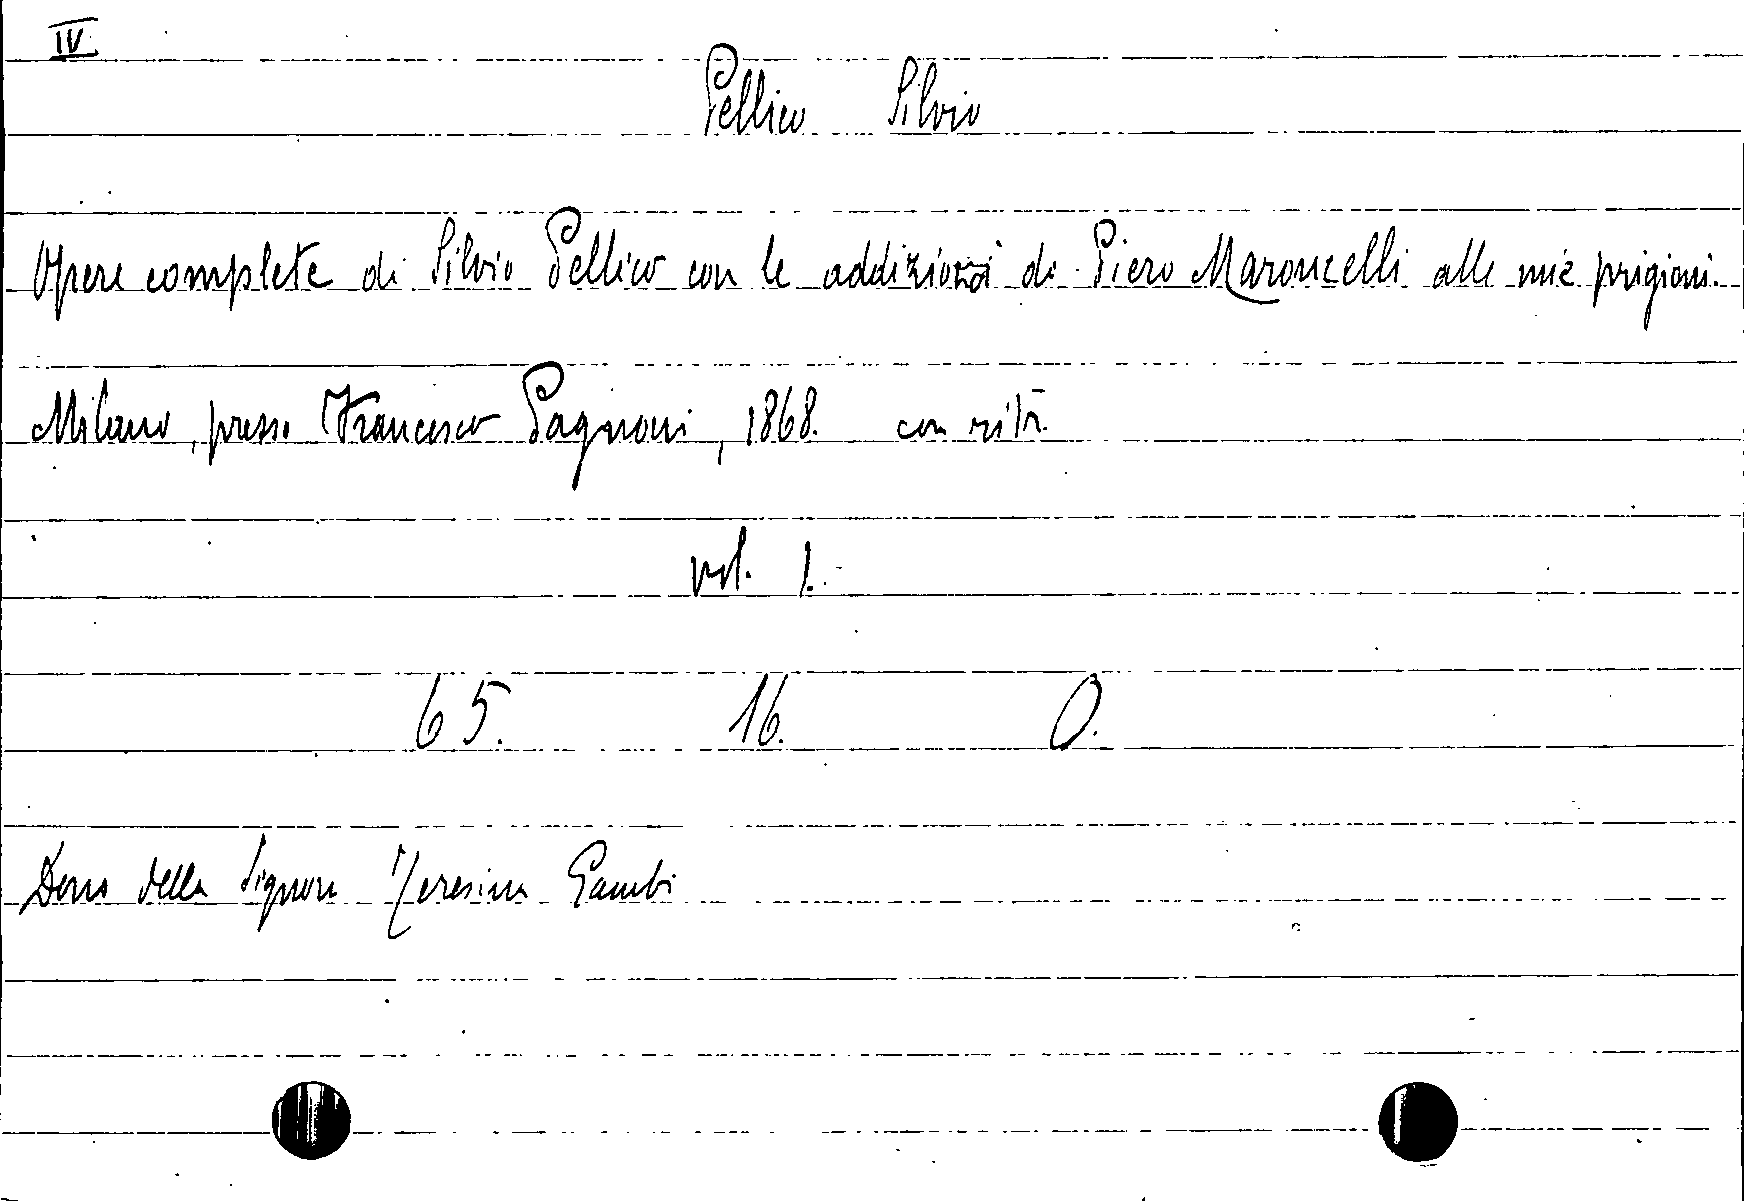 IV
Pellico Silvio
Opere complete di Silvio Pellico con le addizioni di Piero Maroncelli alle mie prigioni.
Milano, presso Francesco Pagnoni, 1868. con ritr.
vol. 1.
65. 16. O.
Dono della Signora Teresina Gambi